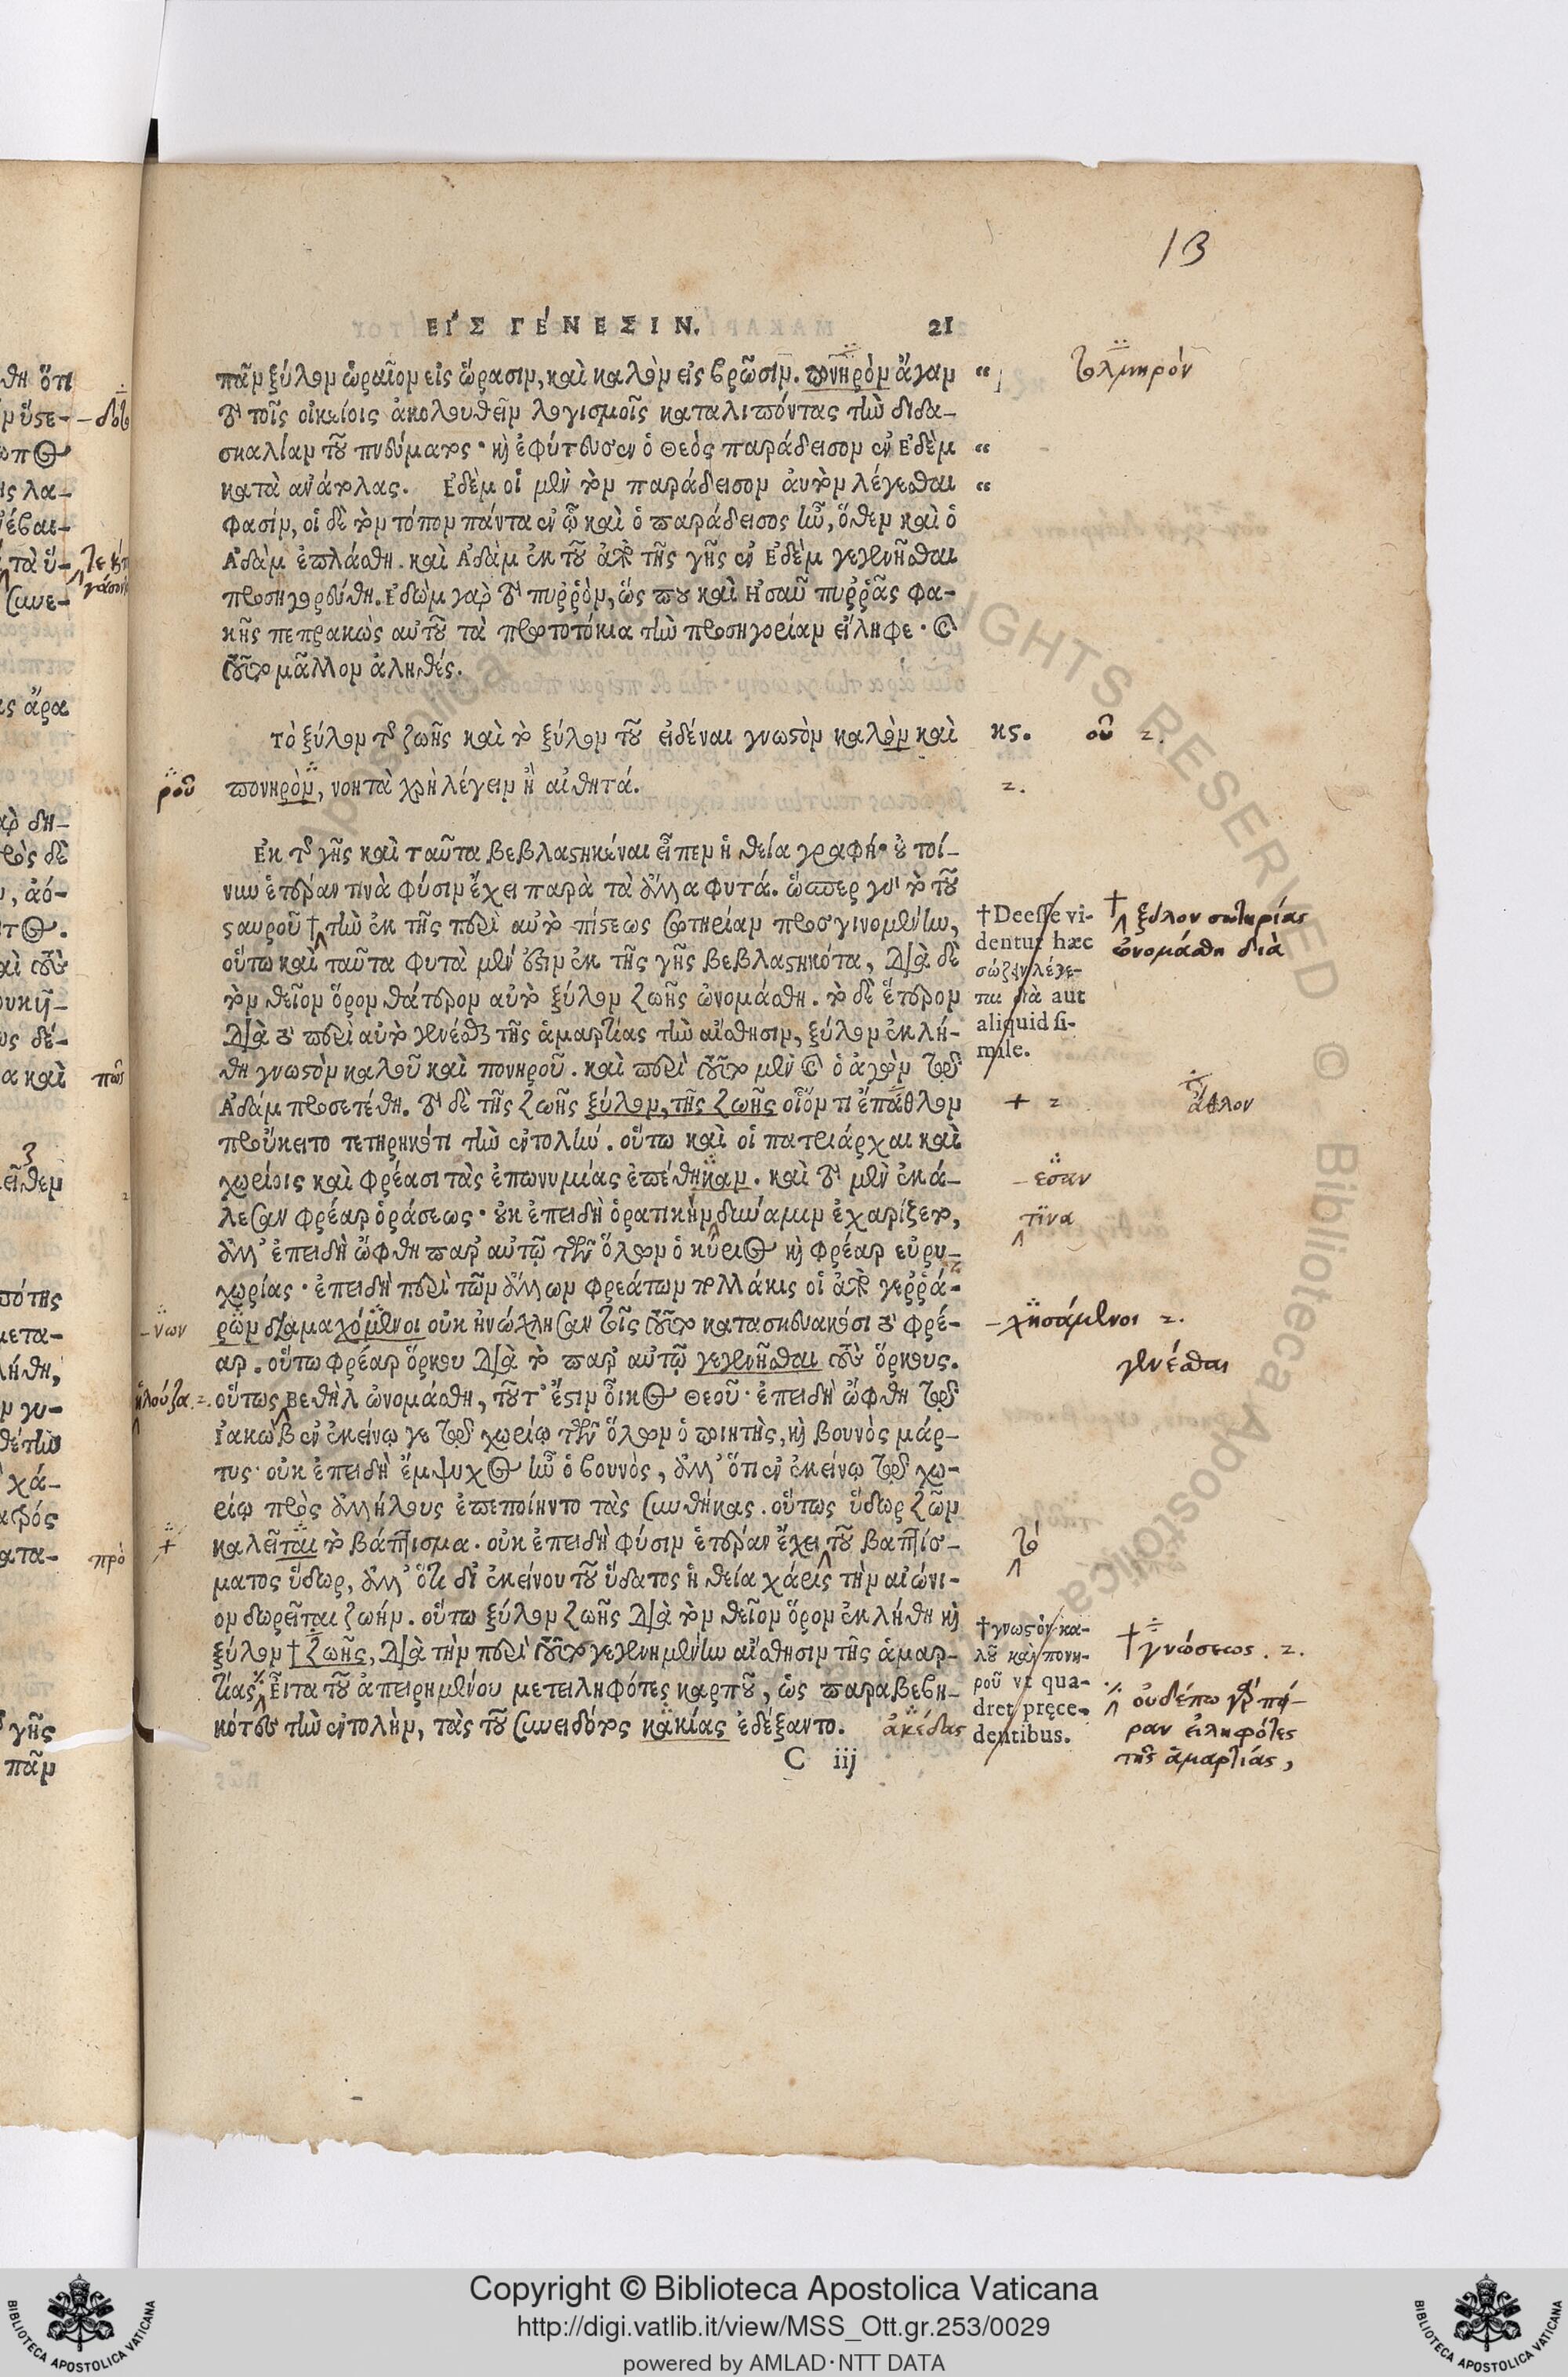 13
ΕἸΣ ΓΈΝΕΣΙΝ. 21
πᾶν ξύλον ὡραῖον εἰς ὥρασιν, καὶ καλὸν εἰς βρῶσιν. πονηρὸν ἄγαν “ τολμηρόν
τὸ τοῖς οἰκείοις ἀκολουθεῖν λογισμοῖς καταλιπόντας τὴν διδα-
σκαλίαν τοῦ πνεύματος· καὶ ἐφύτευσεν ὁ Θεὸς παράδεισον ἐν Ἐδὲμ “
κατὰ ἀνάτολας. Ἐδὲμ οἱ μὲν τὸν παράδεισον ἀυτὸν λέγεσθαι “
φασίν, οἱ δὲ τὸν τόπον πάντα ἐν ᾧ καὶ ὁ παράδεισος ἦν, ὅθεν καὶ ὁ
Ἀδὰμ ἐπλάσθη. καὶ Ἀδὰμ ἐκ τοῦ ἀπὸ τῆς γῆς ἐν Ἐδὲμ γεγενῆσθαι
προσηγορεύθη. Ἐδὼμ γὰρ τὸ πυῤῥὸν, ὥς που καὶ Ἠσαῦ πυῤῥᾶς φα-
κῆς πεπρακὼς αὐτοῦ τὰ πρωτοτόκια τὴν προσηγορίαν εἴληφε· καὶ
τοῦτο μᾶλλον ἀληθές.
Τὸ ξύλον τῆς ζωῆς καὶ τὸ ξύλον τοῦ εἰδέναι γνωστὸν καλὸν καὶ κς. οῦ 2.
ροῦ πονηρὸν, νοητὰ χρὴ λέγειν ἢ αἰσθητά. 2.
Ἐκ τῆς γῆς καὶ ταῦτα βεβλαστηκέναι εἶπεν ἡ θεία γραφή· οὐ τοί-
νυν ἑτέραν τινὰ φύσιν ἔχει παρὰ τὰ ἄλλα φυτά. ὥσπερ γὰρ τὸ τοῦ
σταυροῦ † τὴν ἐκ τῆς περὶ αὐτὸ πίστεως σωτηρίαν προσγινομένην,
οὕτω καὶ ταῦτα φυτὰ μέν ἐστιν ἐκ τῆς γῆς βεβλαστηκότα, διὰ δὲ
τὸν θεῖον ὅρον θάτερον αὐτὸ ξύλον ζωῆς ὠνομάσθη. τὸ δὲ ἕτερον
διὰ τὸ περὶ αὐτὸ γενέσθαι τῆς ἁμαρτίας τὴν αἴσθησιν, ξύλον ἐκλή-
θη γνωστὸν καλοῦ καὶ πονηροῦ. καὶ περὶ τοῦτο μὲν καὶ ὁ ἀγὼν τῷ
Ἀδάμ προσετέθη. τὸ δὲ τῆς ζωῆς ξύλον, τῆς ζωῆς οἷόν τι ἔπαθλον + 2 ἆθλον
προὔκειτο τετηρηκότι τὴν ἐντολήν. οὕτω καὶ οἱ πατριάρχαι καὶ
χωρίοις καὶ φρέασι τὰς ἐπωνυμίας ἐπέθηκαν. καὶ τὸ μὲν ἐκά- -εσαν
λεσαν φρέαρ ὁράσεως· οὐκ ἐπειδὴ ὁρατικὴν δυνάμιν ἐχαρίζετο, τινα
ἀλλ’ ἐπειδὴ ὤφθη παρ’ αὐτῷ τῶν ὅλων ὁ κύριος καὶ φρέαρ εὐρυ-
χωρίας· ἐπειδὴ περὶ τῶν ἄλλων φρεάτων πολλάκις οἱ ἀπὸ γεῤῥά-
-νων ρων διαμαχόμενοι οὐκ ἠνώχλησαν τοῖς τοῦτο κατασκευακόσι τὸ φρέ- -χησάμενοι 2.
αρ. οὕτω φρέαρ ὅρκου διὰ τὸ παρ’ αὐτῷ γεγενῆσθαι τοὺς ὅρκους. γενέσθαι
ἡ λούζα 2. οὕτως Βεθὴλ ὠνομάσθη, τοῦτ’ ἔστιν οἶκος Θεοῦ· ἐπειδὴ ὤφθη τῷ
Ἰακὼβ ἐν ἐκείνῳ γε τῷ χωρίῳ τῶν ὅλων ὁ ποιητὴς, καὶ βουνὸς μάρ-
τυς· οὐκ ἐπειδὴ ἔμψυχος ἦν ὁ βουνὸς, ἀλλ’ ὅτι ἐν ἐκείνῳ τῷ χω-
ρίῳ πρὸς ἀλλήλους ἐπεποίηντο τὰς συνθήκας. οὕτως ὕδωρ ζῶν
+ καλεῖται τὸ βάπτισμα. οὐκ ἐπειδὴ φύσιν ἑτέραν ἔχει τοῦ βαπτίσ- τὸ
ματος ὕδωρ, ἀλλ’ ὅτι δι’ ἐκείνου τοῦ ὕδατος ἡ θεία χάρις τὴν αἰώνι-
ον δωρεῖται ζωήν. οὕτω ξύλον ζωῆς διὰ τὸν θεῖον ὅρον ἐκλήθη καὶ
ξύλον † ζωῆς, διὰ τὴν περὶ τοῦτο γεγενημένην αἴσθησιν τῆς ἁμαρ-
τίας. Εἶτα τοῦ ἀπειρημένου μετειληφότες καρποῦ, ὡς παραβεβη-
κότες τὴν ἐντολὴν, τὰς τοῦ συνειδότος κακίας ἐδέξαντο. ἀκίδας
C iij
† Deesse vi-
dentur hæc
σώζειν λέγε-
ται διὰ aut
aliquid si-
mile.
† ξύλον σωτηρίας
ὠνομάσθη διὰ
† γνωστὸν κα-
λοῦ καὶ πονη-
ροῦ vt qua-
dret pręce-
dentibus.
† γνώσεως. 2.
οὐδέπω γὰρ πεῖ-
ραν εἰληφότες
τῆς ἁμαρτίας,
Copyright © Biblioteca Apostolica Vaticana
http://digi.vatlib.it/view/MSS_Ott.gr.253/0029
powered by AMLAD·NTT DATA